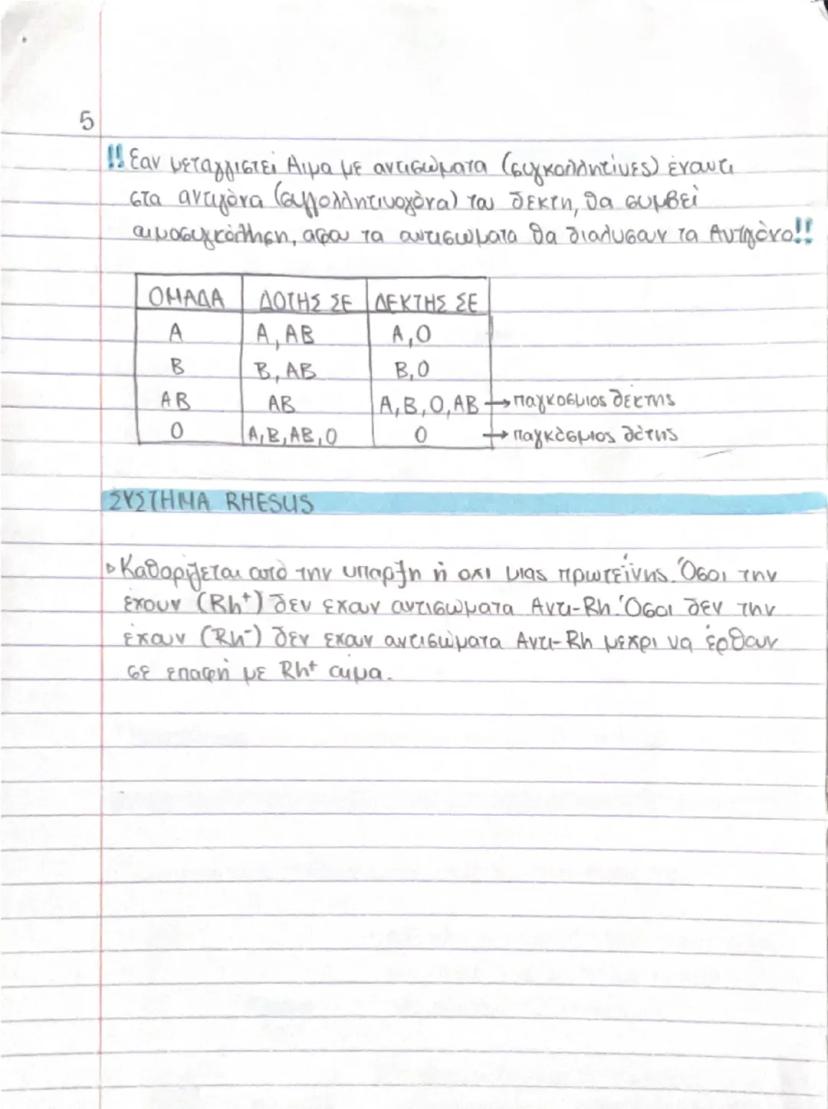 5
!! Εαν μεταγγιστεί Αιμα με αντισώματα (συγκολλητίνες) έναντι
στα αντιγόνα (συγκολλητινογόνα) του δεκτη, θα συμβεί
αιμοσυγκόλληση, αφου τα αντισώματα θα διαλυσουν τα Αντιγόνα!!
ΟΜΑΔΑ ΔΟΤΗΣ ΣΕ ΔΕΚΤΗΣ ΣΕ
Α Α, ΑΒ Α, Ο
Β Β, ΑΒ Β, Ο
ΑΒ ΑΒ Α, Β, Ο, ΑΒ → παγκοσμιος δέκτης
Ο Α, Β, ΑΒ, Ο Ο → παγκόσμιος δότης
ΣΥΣΤΗΜΑ RHESUS
▹ Καθορίζεται από την υπαρξη ή οχι μιας πρωτείνης. Όσοι την
έχουν (Rh⁺) δεν εχουν αντισώματα Αντι-Rh. Όσοι δεν την
έχουν (Rh⁻) δεν εχουν αντισώματα Αντι-Rh μεχρι να έρθουν
σε επαφή με Rh⁺ αιμα.